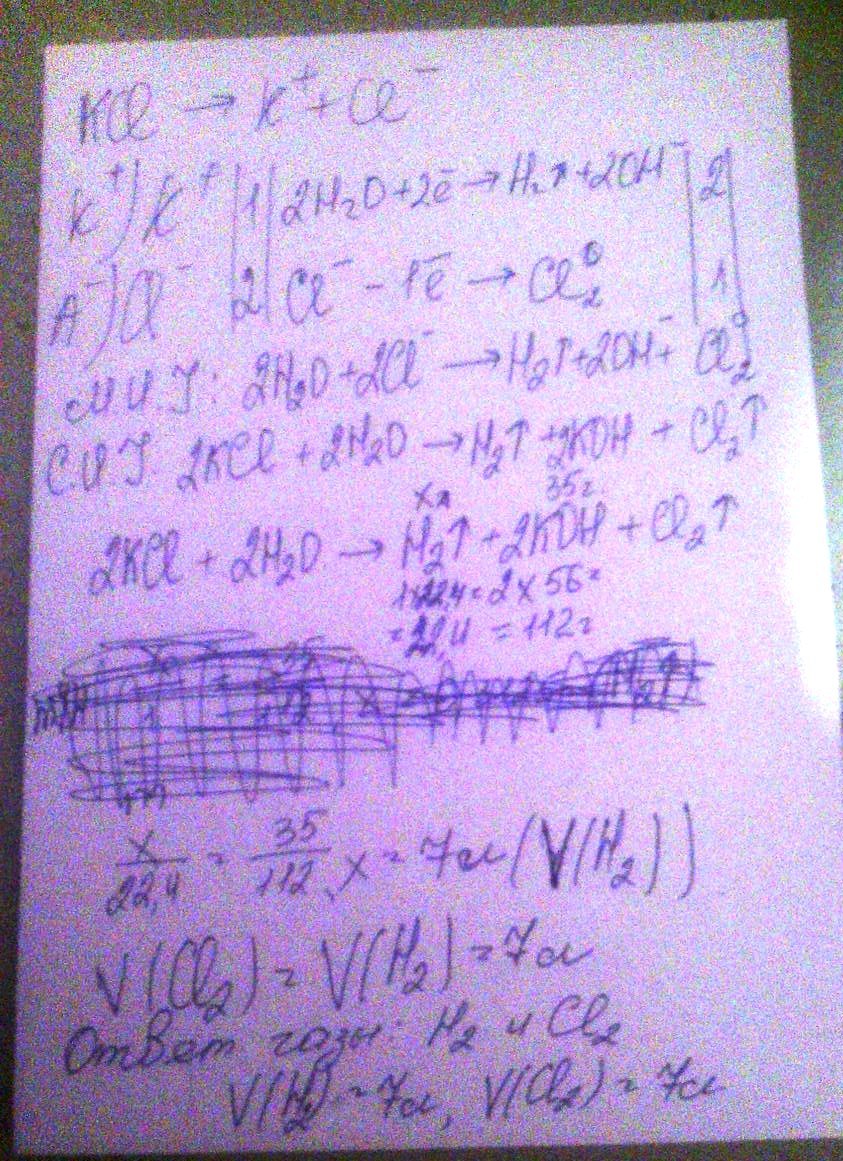 KCl → K⁺ + Cl⁻
K⁺) K⁺ |1| 2H₂O + 2ē → H₂↑ + 2OH⁻ |2|
A⁻) Cl⁻ |2| Cl⁻ - 1ē → Cl₂⁰ |1|
М.И.У: 2H₂O + 2Cl⁻ → H₂↑ + 2OH⁻ + Cl₂⁰
С.И.У. 2KCl + 2H₂O → H₂↑ + 2KOH + Cl₂↑
xл 35г
2KCl + 2H₂O → H₂↑ + 2KOH + Cl₂↑
1×22,4= 2×56=
=22,4 =112г
x/22,4 = 35/112, x = 7л (V(H₂))
V(Cl₂) = V(H₂) = 7л
Ответ газы: H₂ и Cl₂
V(H₂) = 7л, V(Cl₂) = 7л